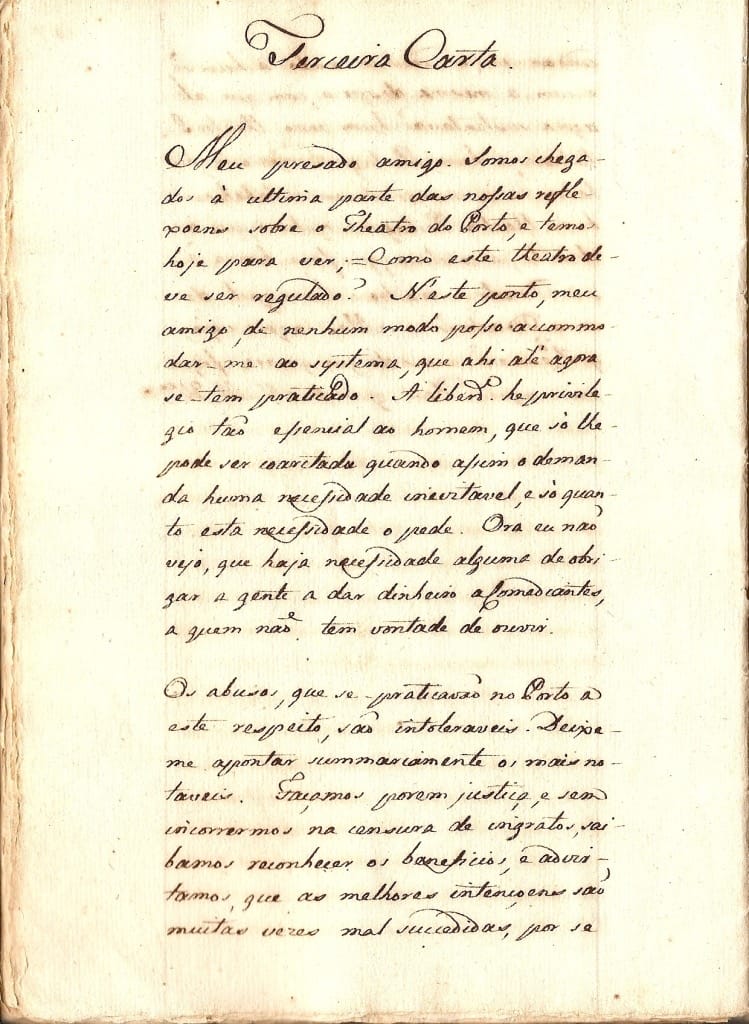 Terceira Carta.
Meu presado amigo. Somos chega-
dos à ultima parte das nossas refle-
xoens sobre o Theatro do Porto, e temos
hoje para ver, = Como este theatro de-
ve ser regulado? Neste ponto, meu
amigo, de nenhum modo posso accommo-
dar-me ao systema, que ahi atè agora
se-tem praticado. A liberde. he privile-
gio taõ esencial ao homem, que sò lhe
pode ser coarctada quando asim o deman-
da huma necessidade inevitavel, e sò quan-
to esta necessidade o pede. Ora eu naõ
vejo, que haja necessidade alguma de obri-
gar a gente a dar dinheiro a Comediantes,
a quem naõ tem vontade de ouvir.
Os abusos, que se-praticavaõ no Porto a
este respeito, saõ intoleraveis. Deixe-
me apontar summariamente os mais no-
taveis. Façamos porem justiça, e sem
incorrermos na censura de ingratos, sai-
bamos reconhecer os beneficios, e advir-
tamos, que as melhores intençoens saõ
muitas vezes mal succedidas, por se